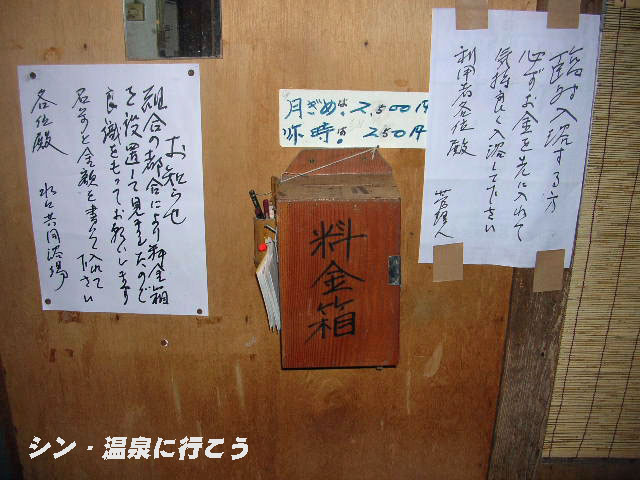 お知らせ
組合の都合により料金箱
を設置して見ましたので
良識をもってお願いします
名前と金額を書いて入れて下さい
各位殿
水口共同浴場
月ぎめは、2,500円
臨時は、250円
料金箱
臨時入浴する方
必ずお金を先に入れて
気持良く入浴して下さい
利用者各位殿
管理人
シン・温泉に行こう